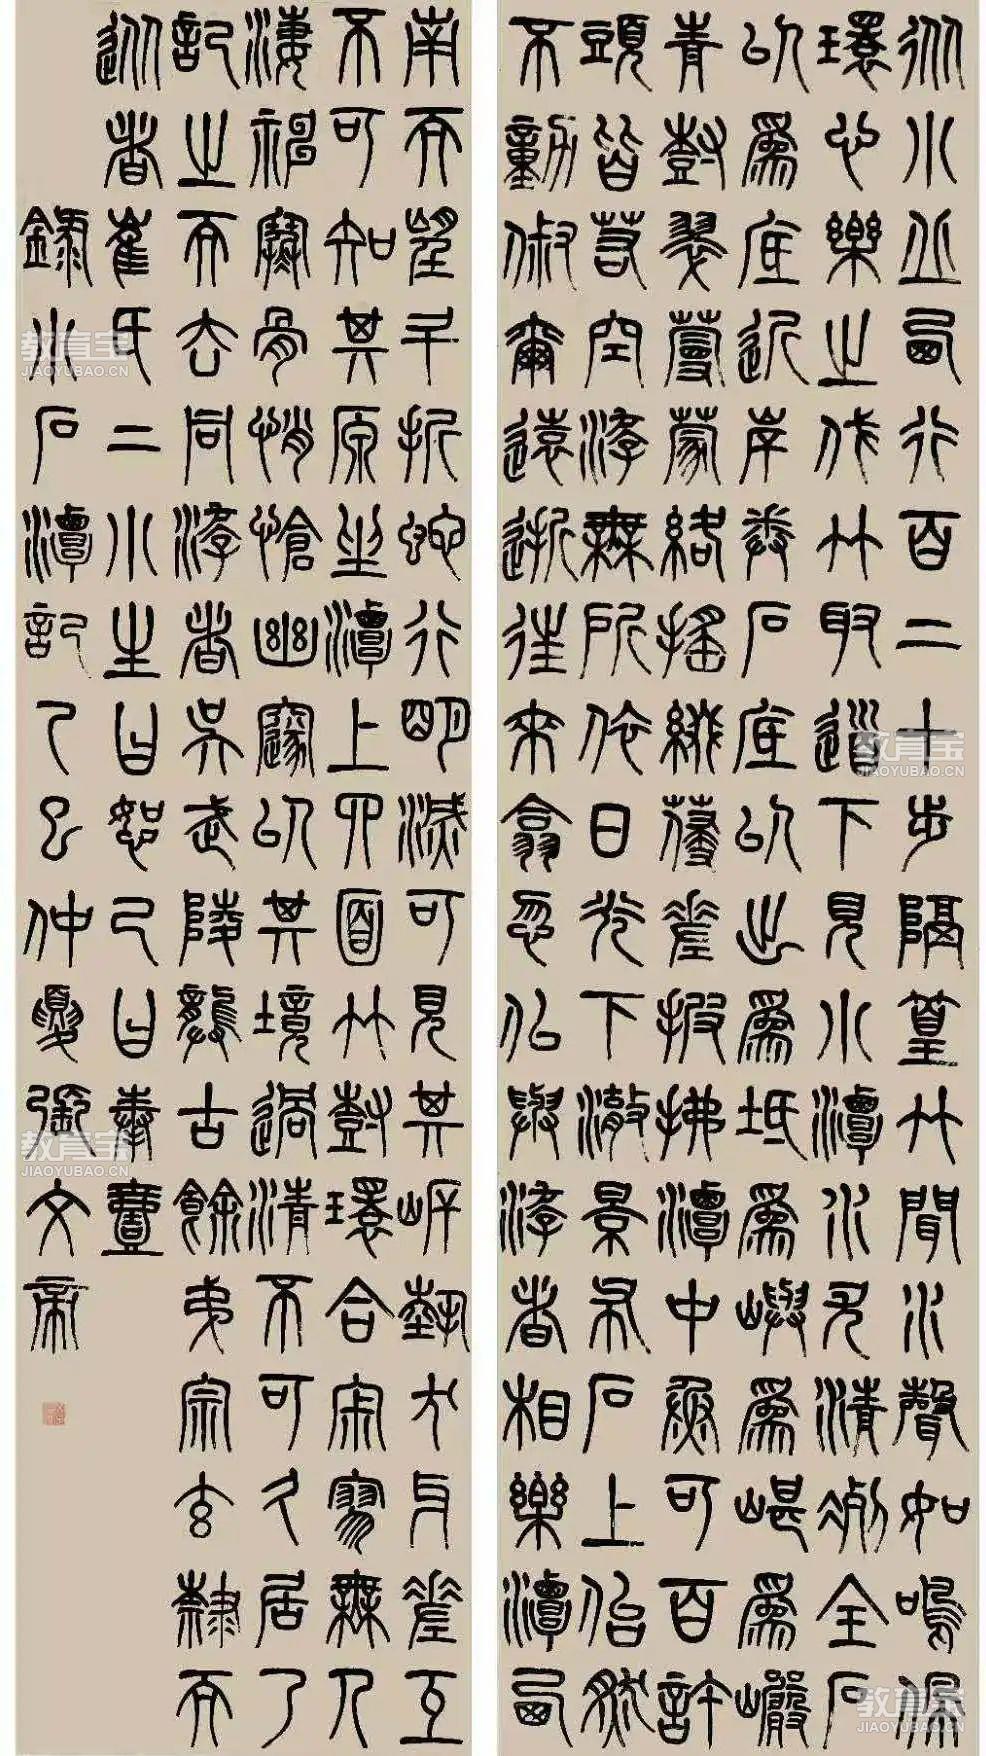 從小丘西行百二十步隔篁竹聞水聲如鳴佩
環心樂之伐竹取道下見小潭水尤清洌全石
以為底近岸卷石底以出為坻為嶼為嵁為巖
青樹翠蔓蒙絡搖綴參差披拂潭中魚可百許
頭皆若空游無所依日光下澈景布石上佁然
不動俶爾遠逝往來翕忽似與游者相樂潭西
南而望斗折蛇行明滅可見其岸勢犬牙差互
不可知其原坐潭上四面竹樹環合寂寥無人
淒神寒骨悄愴幽邃以其境過清不可久居乃
記之而去同游者吳武陵龔古餘弟宗玄隸而
從者崔氏二小生曰恕己曰奉壹
錄小石潭記乙巳仲夏張文
教育宝
JIAOYUBAO.CN
教育宝
JIAOYUBAO.CN
教育宝
JIAOYUBAO.CN
教育宝
JIAOYUBAO.CN